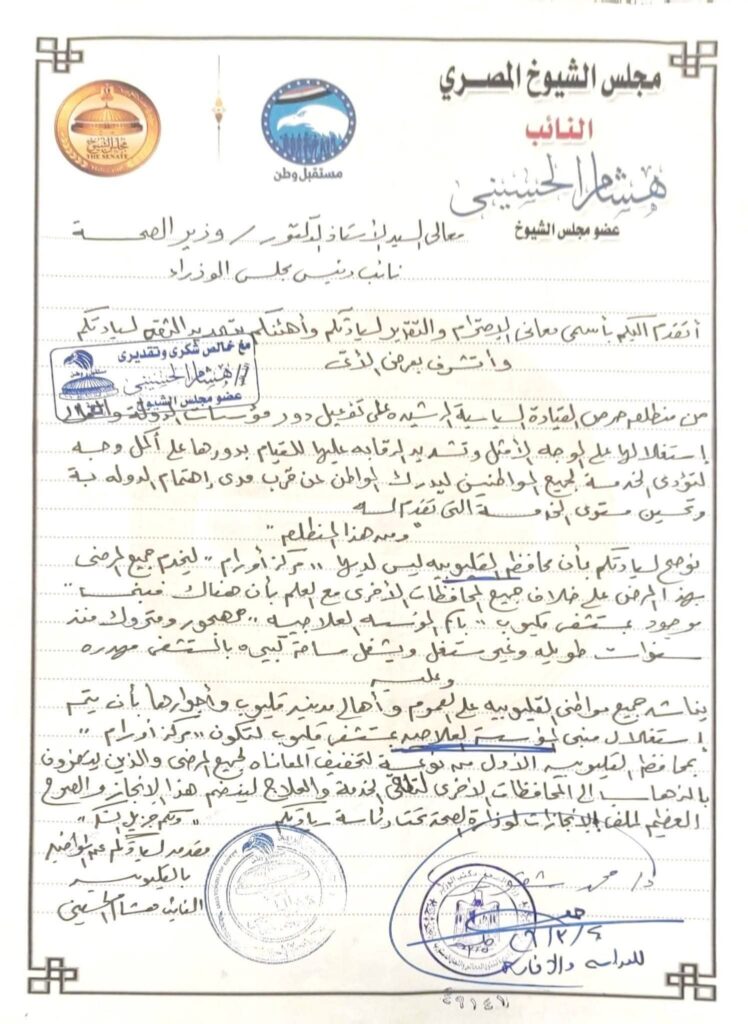 مجلس الشيوخ المصرى
النائب
هشام الحسينى
عضو مجلس الشيوخ
THE SENATE
مستقبل وطن
معالى السيد الأستاذ الدكتور / وزير الصحة
نائب رئيس مجلس الوزراء
أتقدم اليكم بأسمى معانى الإحترام والتقدير لسيادتكم وأهنئكم بتجديد الثقة لسيادتكم
وأتشرف بعرض الأتى
مع خالص شكرى وتقديرى
هشام الحسينى
عضو مجلس الشيوخ
من منطلق حرص القيادة السياسية الرشيده على تفعيل دور مؤسسات الدولة
إستغلالها على الوجه الأمثل وتشديد الرقابه عليها للقيام بدورها على أكمل وجه
لتؤدى الخدمة لجميع المواطنين ليدرك المواطن عن قرب مدى إهتمام الدوله بة
وتحسين مستوى الخدمة التى تقدم له
"ومن هذا المنطلق"
نوضح لسيادتكم بأن محافظة القليوبيه ليس لديها "مركز أورام" ليخدم جميع المرضى
بهذا المرض على خلاف جميع المحافظات الأخرى مع العلم بأن هناك مبنى
موجود بمستشفى قليوب "بأسم المؤسسه العلاجيه" مهجور ومتروك منذ
سنوات طويله وغير مستغل ويشغل مساحة كبيره بالمستشفى مهدره
وعليه
يناشد جميع مواطنى القليوبيه على العموم وأهالى مدينة قليوب وأجوارها بأن يتم
إستغلال مبنى المؤسسة العلاجيه بمستشفى قليوب لتكون "مركز أورام"
بمحافظة القليوبيه الأول من نوعة لتخفيف المعاناه لجميع المرضى والذين يلجؤون
بالذهاب إلى المحافظات الأخرى لتلقى الخدمة والعلاج لينضم هذا الانجاز والصرح
العظيم لملف الإنجازات لوزارة الصحة تحت رئاسة سيادتكم
"ولكم جزيل الشكر"
مقدمه لسيادتكم
بالقليوبيه
النائب هشام الحسينى
د/ محمد
للدراسه والإفاده